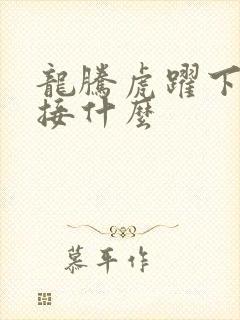 龍騰虎躍下
接什麼
慕平作